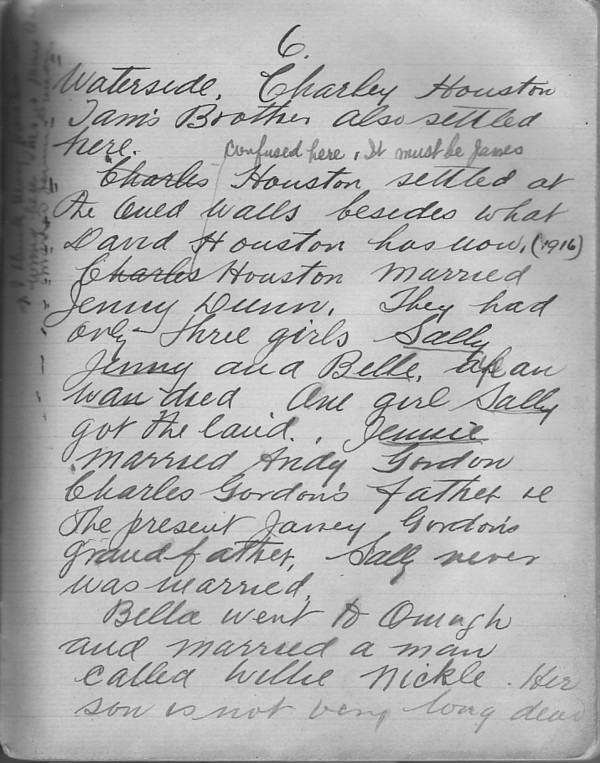 6.
Waterside. Charley Houston
Tam's Brother also settled
here.
confused here. It must be James
Charles Houston settled at
the oued walls besides what
David Houston has now. (1916)
Charles Houston married
Jenny Dunn. They had
only three girls Sally
Jenny and Belle.
died One girl Sally
got the land. Jennie
married Andy Gordon
Charles Gordon's father ie
the present Janey Gordon's
grandfather, Sally never
was married.
Bella went to Omagh
and married a man
called Willie Nickle. Her
son is not very long dead